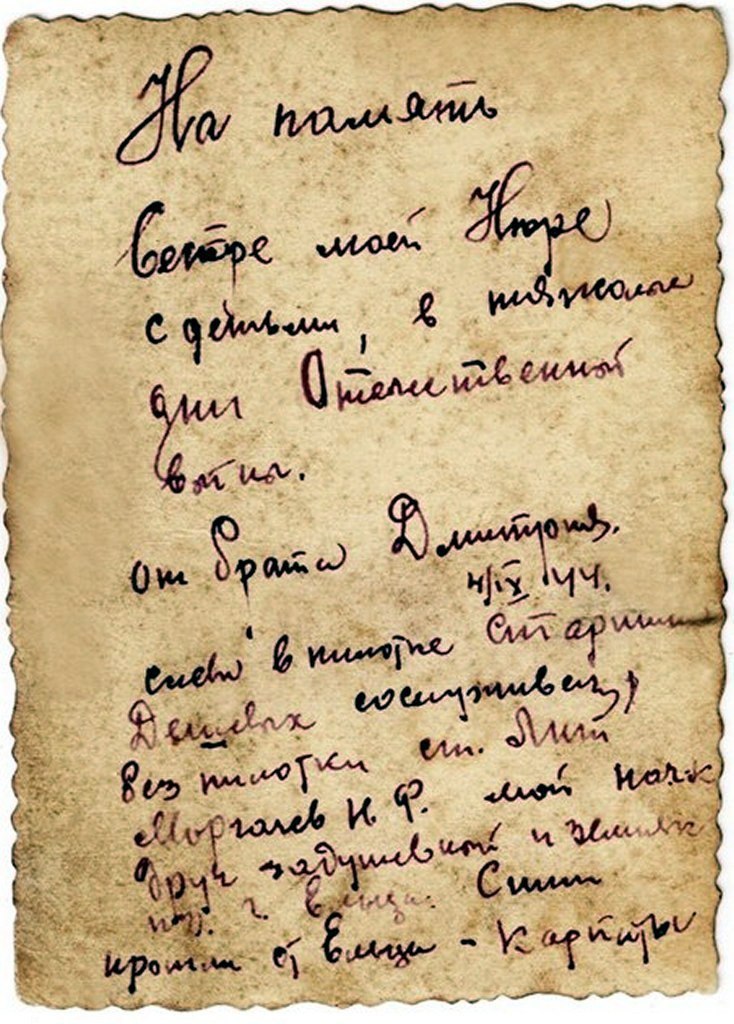 На память
Сестре моей Нюре
с детьми, в тяжолые
дни Отечественной
войны.
от брата Дмитрия.
4/IX 44.
слева в пилотке старшин
Дешевых сослуживец,
без пилотки ст. Лит
Моргачев Н. Ф. мой
друг задушевный и земляк
из г. Ельца. С ним
прошли от Ельца - Карпаты